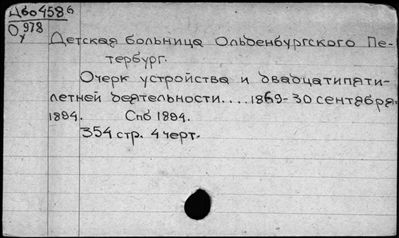 Дво 4586
О 978
у
Детская больница Ольденбургского Пе-
тербург.
Очерк устройства и двадцатипяти-
летней деятельности.... 1869-30 сентября
1894. Спб 1894.
354 стр. 4 черт.